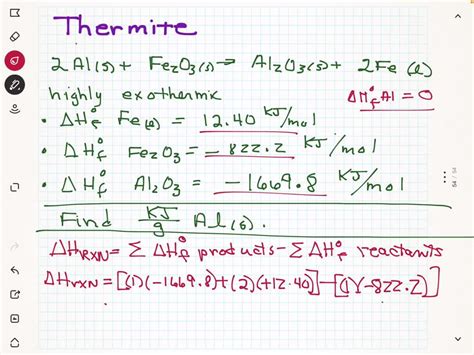 Thermite
2Al(s) + Fe₂O₃(s) → Al₂O₃(s) + 2Fe (l)
highly exothermic
ΔH°f Al = 0
• ΔH°f Fe(l) = 12.40 KJ/mol
• ΔH°f Fe₂O₃ = -822.2 KJ/mol
• ΔH°f Al₂O₃ = -1669.8 KJ/mol
Find KJ/g Al(s).
ΔHRXN = Σ ΔH°f products - Σ ΔH°f reactants
ΔHrxn = [(1)(-1669.8)+(2)(+12.40)]-[(1)(-822.2)]
54 / 54